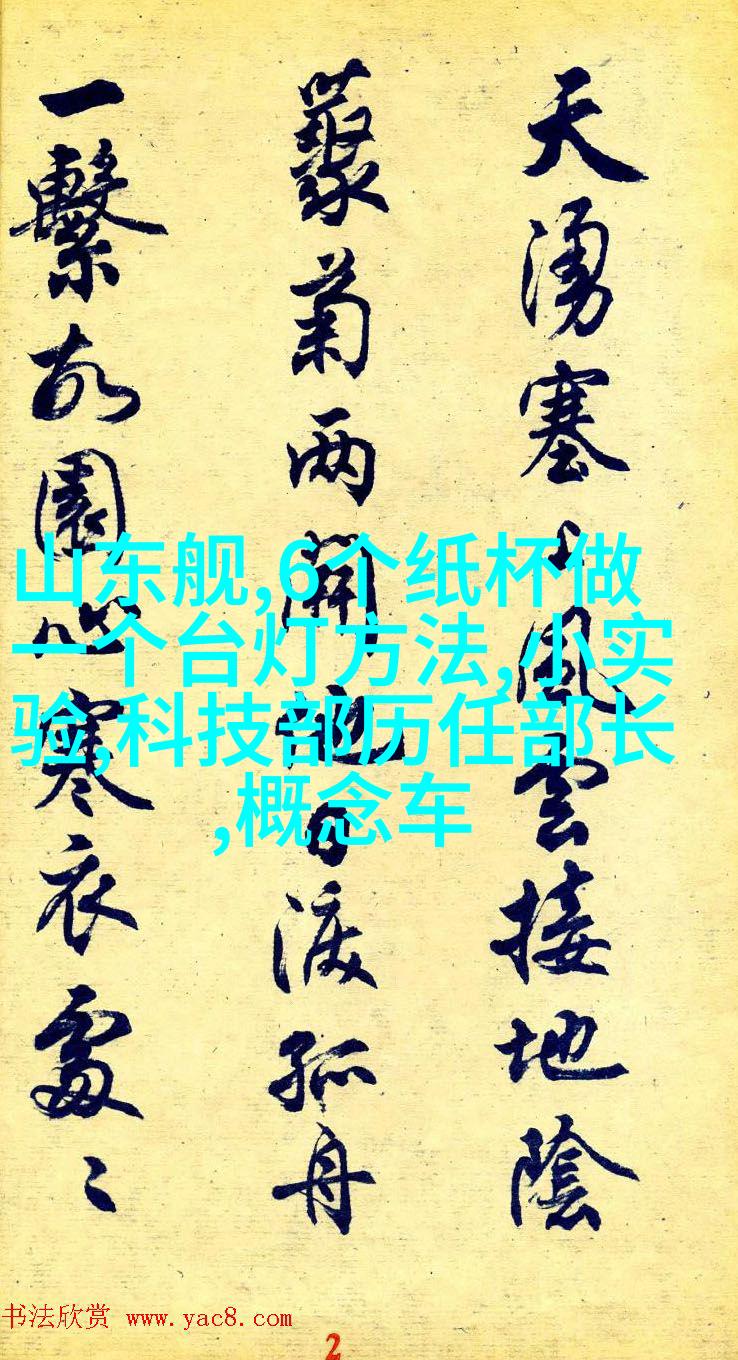 天湧塞上風雲接地陰
藂菊兩開他日淚孤舟
一繫故園心寒衣處〻
山东舰,6个纸杯做
一个台灯方法,小实
验,科技部历任部长
,概念车
书法欣赏 www.yac8.com
2